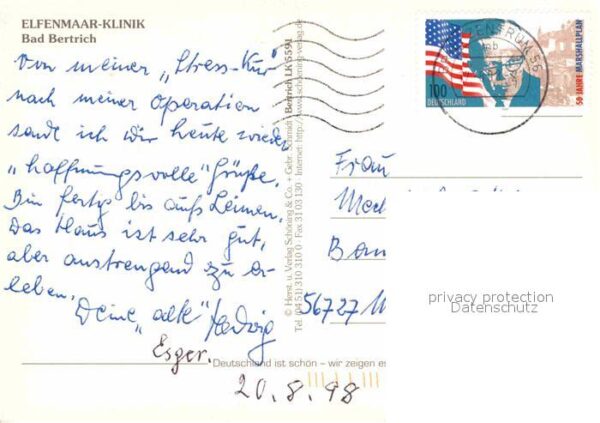 ELFENMAAR-KLINIK
Bad Bertrich
Von meiner „Stress-Kur"
nach meiner Operation
sende ich Dir heute wieder
„hoffnungsvolle" Grüße.
Bin fertig bis aufs Leinen.
Das Haus ist sehr gut,
aber anstrengend zu er-
leben.
Deine „alte" Hedwig
Esger.
20.8.98
Deutschland ist schön – wir zeigen es
© Herst. u. Verlag Schöning & Co. + Gebr. Schmidt
Bertrich LK 5591
Tel. (04 51) 310 310 0 · Fax 31 03 130
100
DEUTSCHLAND
50 JAHRE MARSHALLPLAN
ZENTRUM 56
Frau
56727
privacy protection
Datenschutz